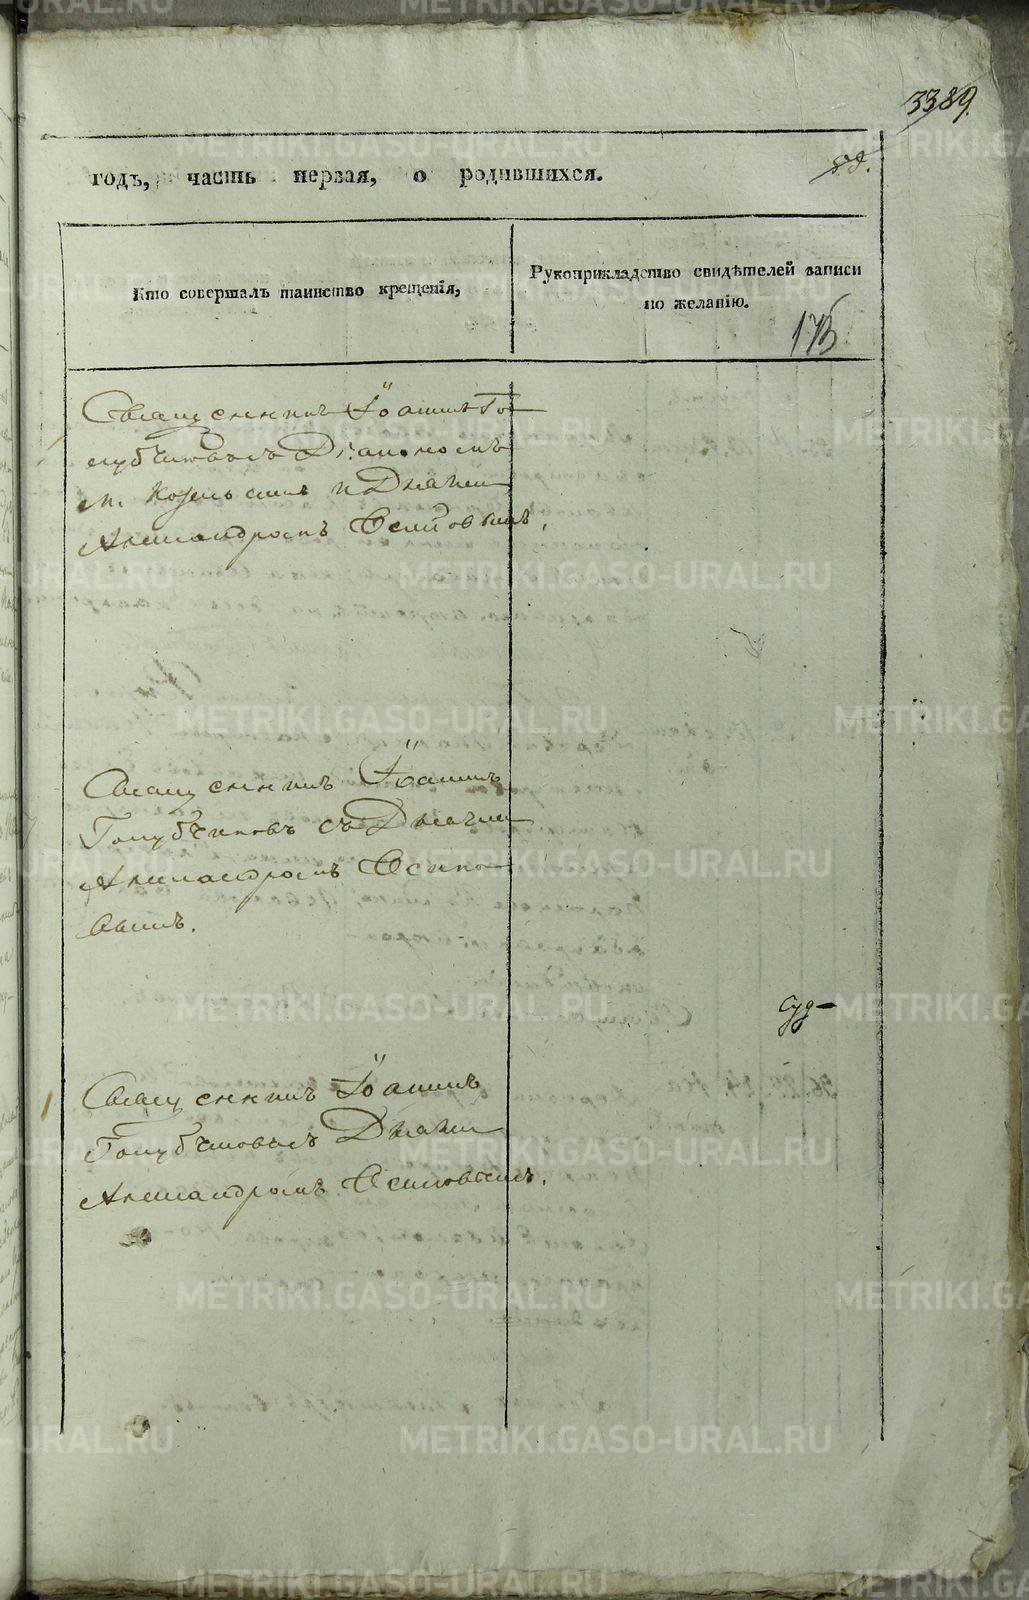 3389.
годъ, часть первая, о родившихся.
Кто совершалъ таинство крещенія,
Рукоприкладство свидѣтелей записи
по желанію.
175
Священникъ Іоаннъ Го-
лубчиковъ съ Діакономъ
и Дьячкомъ
Александромъ Осиповымъ.
Священникъ Іоаннъ
Голубчиковъ съ Дьячком
Александромъ Осипо-
вымъ.
Суд-
Священникъ Іоаннъ
Голубчиковъ съ Дьячком
Александромъ Осиповымъ.
METRIKI.GASO-URAL.RU